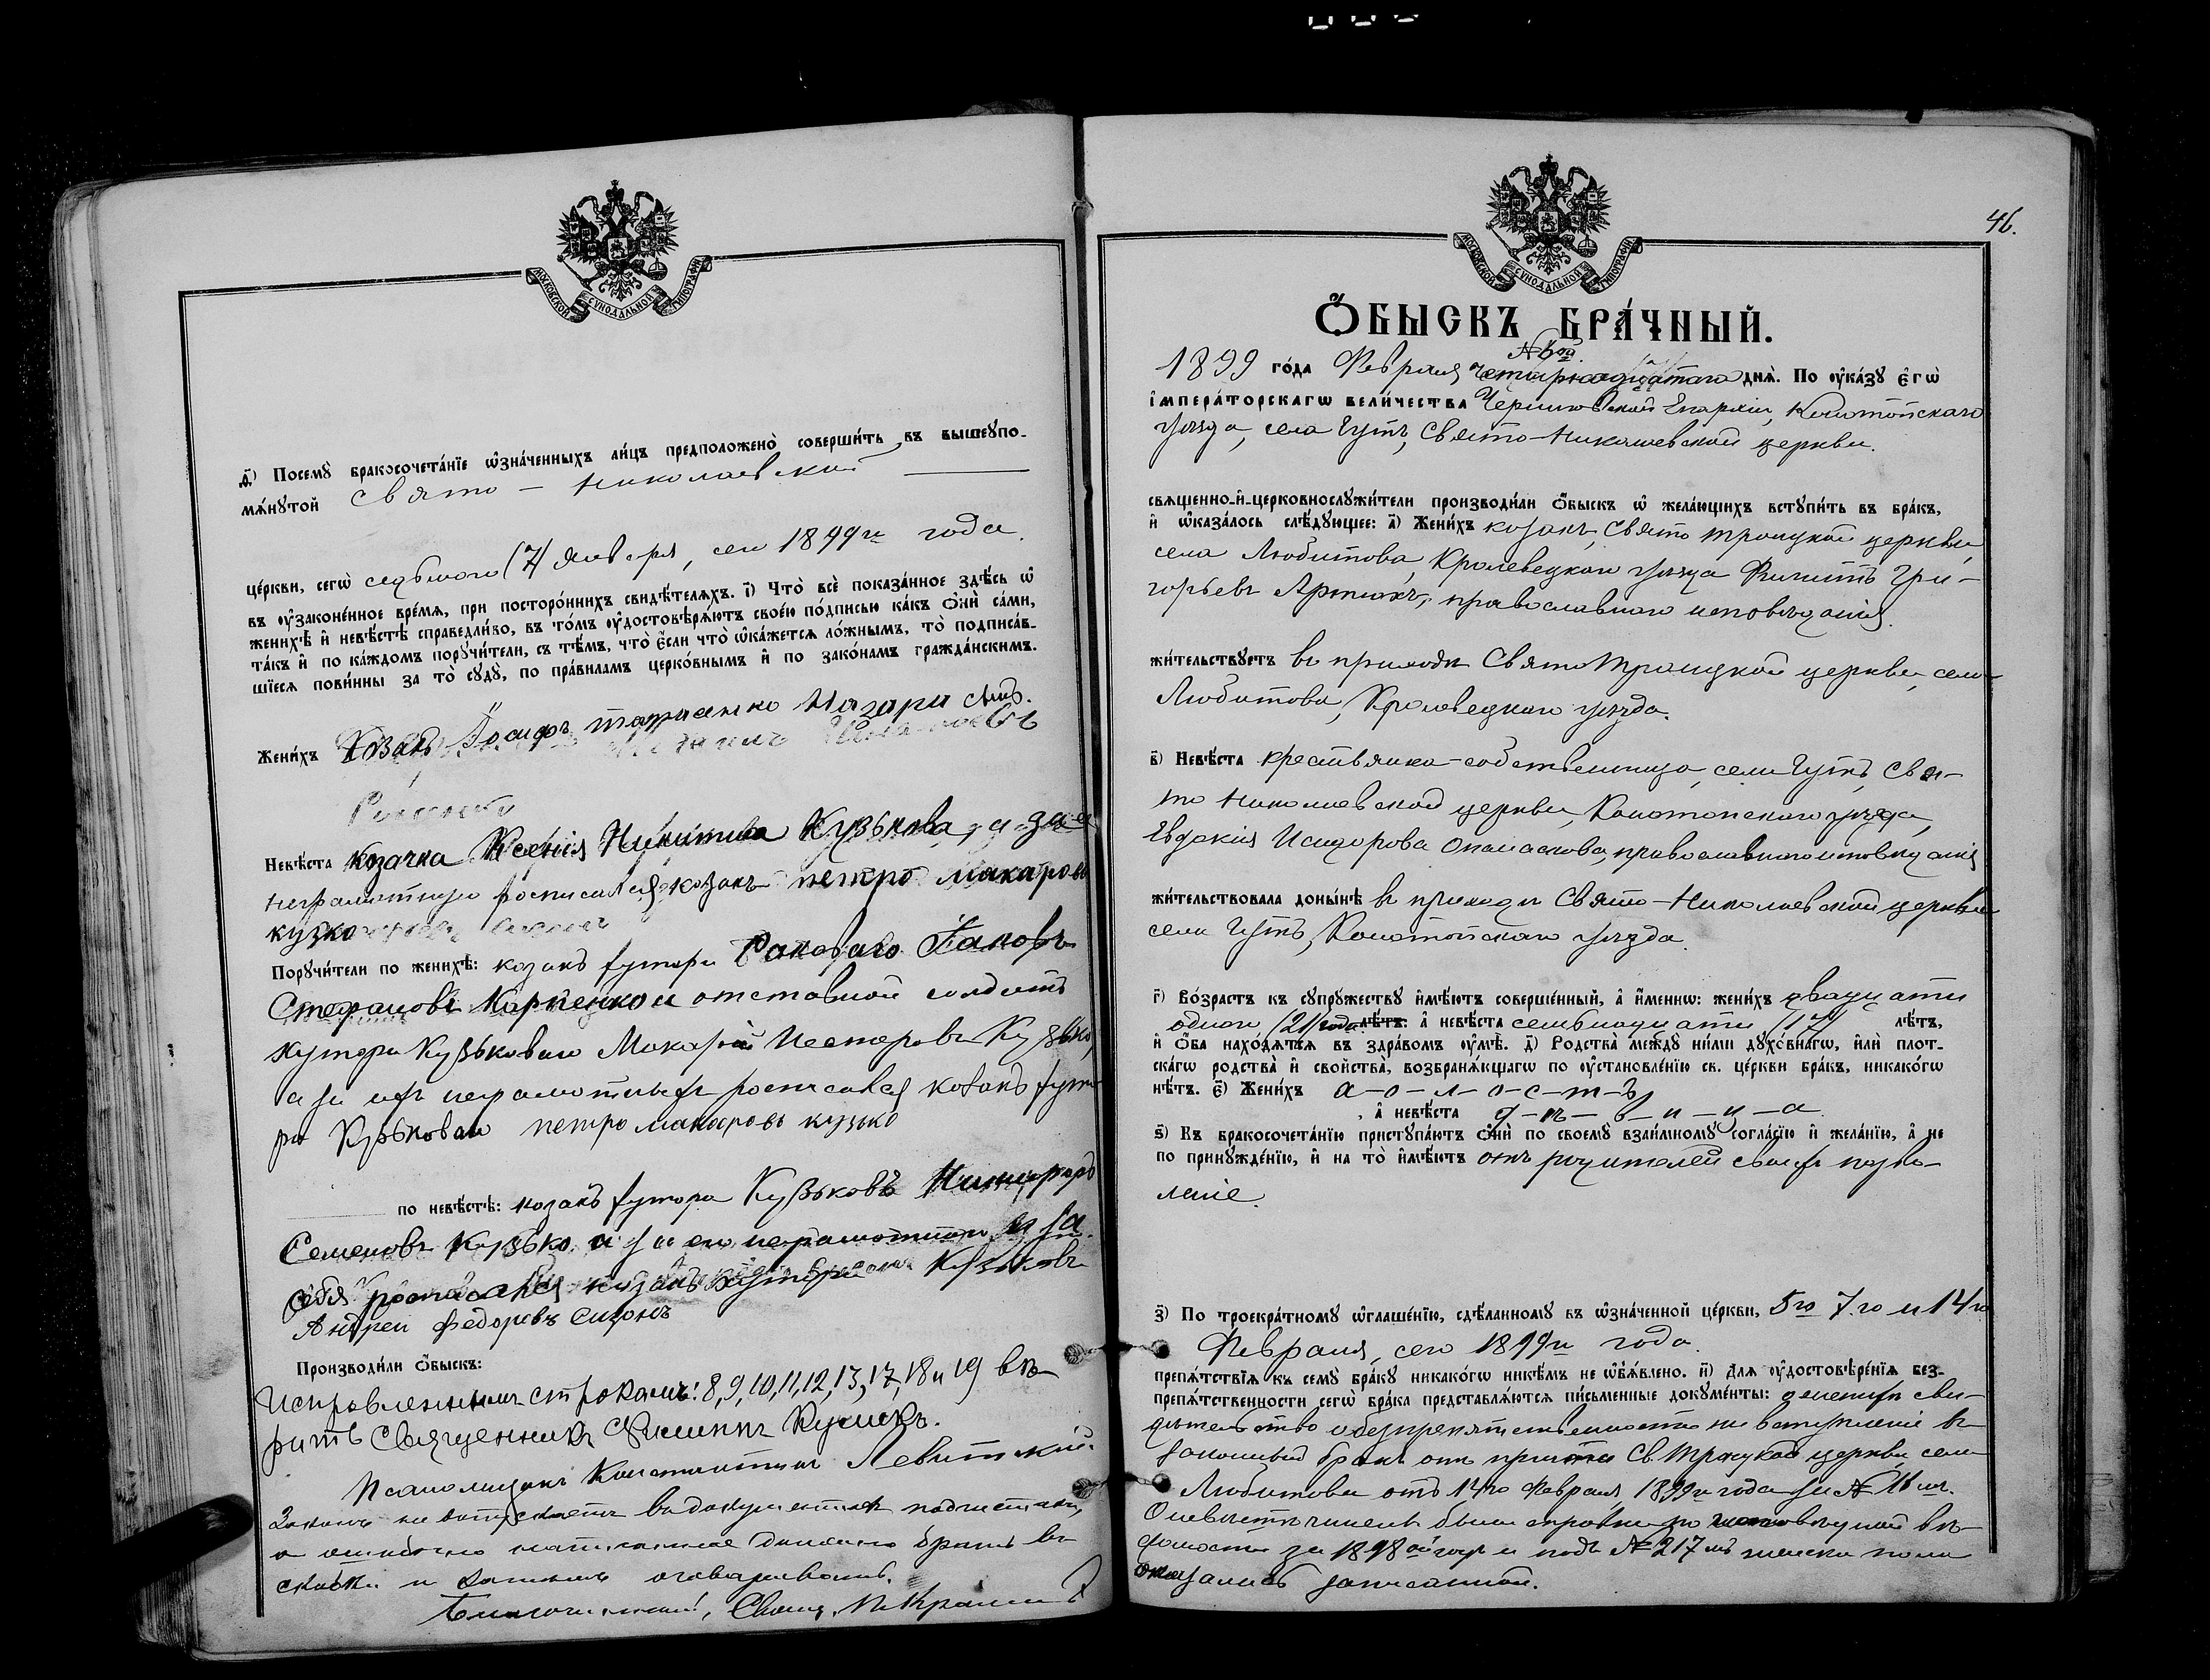 МОСКОВСКОЙ СѴНОДАЛЬНОЙ ТИПОГРАФІИ
д҃) Посемꙋ̀ бракосочета́нїе ѡ҆зна́ченныхъ ли́цъ предположено̀ соверши́ть въ вышеꙋпо-
мѧ́нꙋтой Свято - Николаевской
це́ркви, сегѡ̀ седьмого (7) Января, сего 1899го года.
въ ᲂу҆законе́нное вре́мѧ, при посторо́ннихъ свидѣ́телѧхъ. і҃) Что̀ всѐ показа́нное здѣ́сь ѡ҆
женихѣ̀ и҆ невѣ́стѣ справедли́во, въ то́мъ ᲂу҆достовѣрѧ́ютъ свое́ю по́дписью ка́къ ѻ҆нѝ са́ми,
та́къ и҆ по ка́ждомъ порꙋчи́тели, съ тѣ́мъ, что̀ є҆́сли что̀ ѡ҆ка́жетсѧ ло́жнымъ, то̀ подписа́в-
шїесѧ пови́нны за то̀ сꙋдꙋ̀, по пра́виламъ церко́внымъ и҆ по зако́намъ гражда́нскимъ.
Жени́хъ Козакъ Іосифъ Назари
Невѣ́ста козачка Ксенія Никитина Кузькова, а за ея
неграмотную росписался козакъ петро макаровъ
кузко
Порꙋчи́тели по женихѣ̀: козакъ хутора Раковаго Іаковъ
Стефановъ Карпенко и отставной солдатъ
хутора Кузьковаго Макарій Несторовъ Кузько,
а за ихъ неграмотныхъ росписался козакъ хуто
ра Кузьковаго петро макаровъ кузько
по невѣ́стѣ: козакъ хутора Кузьковъ Никифоръ
Семеновъ Кузько. а за его неграмотнаго и за
себя росписался козакъ хутора Кузьковъ
Андреи Федоровъ Сизонъ
Производи́ли ѻ҆́быскъ:
Исправленнымъ строкамъ: 8, 9, 10, 11, 12, 13, 17, 18 и 19 вѣ-
рить Священникъ Филиппъ
Псаломщикъ Константинъ Левитскій
Законъ не допускаетъ въ документахъ подчистокъ,
а ошибочно написанное должно брать въ
скобки и оговаривать.
Благочинный, Свящ.
46.
МОСКОВСКОЙ СѴНОДАЛЬНОЙ ТИПОГРАФІИ
Ѻ҆́БЫСКЪ БРА́ЧНЫЙ.
№ 6ой.
1899 го́да Февраля четырнадцатаго днѧ̀. По ᲂу҆ка́зꙋ є҆гѡ̀
і҆мпера́торскагѡ вели́чества Черниговской Епархіи, Конотопскаго
уѣзда, села Гутъ, Свято-Николаевской церкви.
свѧщенно-и҆-церковнослꙋжи́тели производи́ли ѻ҆́быскъ ѡ҆ жела́ющихъ встꙋпи́ть въ бра́къ,
и҆ ѡ҆каза́лось слѣ́дꙋющее: а҃) Жени́хъ козакъ, Свято Троицкой церкви,
села Любитова, Кролевецкаго уѣзда Филиппъ Гри-
горьевъ Артюхъ, православнаго исповѣданія.
жи́тельствꙋетъ въ приходѣ Свято Троицкой церкви, села
Любитова, Кролевецкаго уѣзда.
в҃) Невѣ́ста крестьянка-собственница, села Гутъ, Свя-
то Николаевской церкви, Конотопскаго уѣзда,
Евдокія Исидорова Опанаскова, православнаго исповѣданія
жи́тельствовала доны́нѣ въ приходѣ Свято-Николаевской церкви
села Гутъ, Конотопскаго уѣзда.
г҃) Во́зрастъ къ сꙋпрꙋ́жествꙋ и҆мѣ́ютъ соверше́нный, а҆ и҆́меннѡ: жени́хъ двадцати
одного (21) года лѣ́тъ: а҆ невѣ́ста семьнадцати (17) лѣ́тъ,
и҆ ѻ҆́ба нахо́дѧтсѧ въ здра́вомъ ᲂу҆мѣ̀. д҃) Родства̀ ме́ждꙋ ни́ми дꙋхо́внагѡ, и҆лѝ плот-
ска́гѡ родства̀ и҆ сво́йства̀, возбранѧ́ющагѡ по ᲂу҆становле́нїю св. це́ркви бра́къ, никако́гѡ
нѣ́тъ. є҃) Жени́хъ х-о-л-о-с-т-ъ,
, а҆ невѣ́ста д-ѣ-в-и-ц-а.
ѕ҃) Къ бракосочета́нїю пристꙋпа́ютъ ѻ҆нѝ по своемꙋ̀ взаи́мномꙋ согла́сїю и҆ жела́нїю, а҆ не
по принꙋжде́нїю, и҆ на то̀ и҆мѣ́ютъ отъ родителей своихъ позво-
леніе.
з҃) По троекра́тномꙋ ѡ҆глаше́нїю, сдѣ́ланномꙋ въ ѡ҆зна́ченной це́ркви, 5го 7.го и 14го
Февраля, сего 1899го года.
препѧ́тствїѧ къ семꙋ̀ бра́кꙋ никако́гѡ никѣ́мъ не ѡ҆б̾ѧ́влено. и҃) Длѧ ᲂу҆достовѣре́нїѧ без-
препѧ́тственности сегѡ̀ бра́ка представлѧ́ютсѧ пи́сьменные докꙋме́нты: о женихѣ сви-
дѣтельство о безпрепятственности на вступленіе въ
законный бракъ отъ причта Св. Троицкой церкви села
Любитова отъ 14го Февраля 1899го года за № 16
О невѣстѣ учинена была справка по исповѣдной вѣ-
домости за 1898ой годъ и подъ № 217мъ женска пола
оказалась записанной.